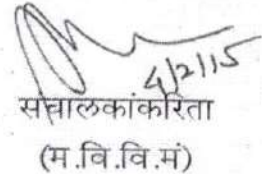 4/2/15
संचालकांकरिता
(म.वि.वि.मं)